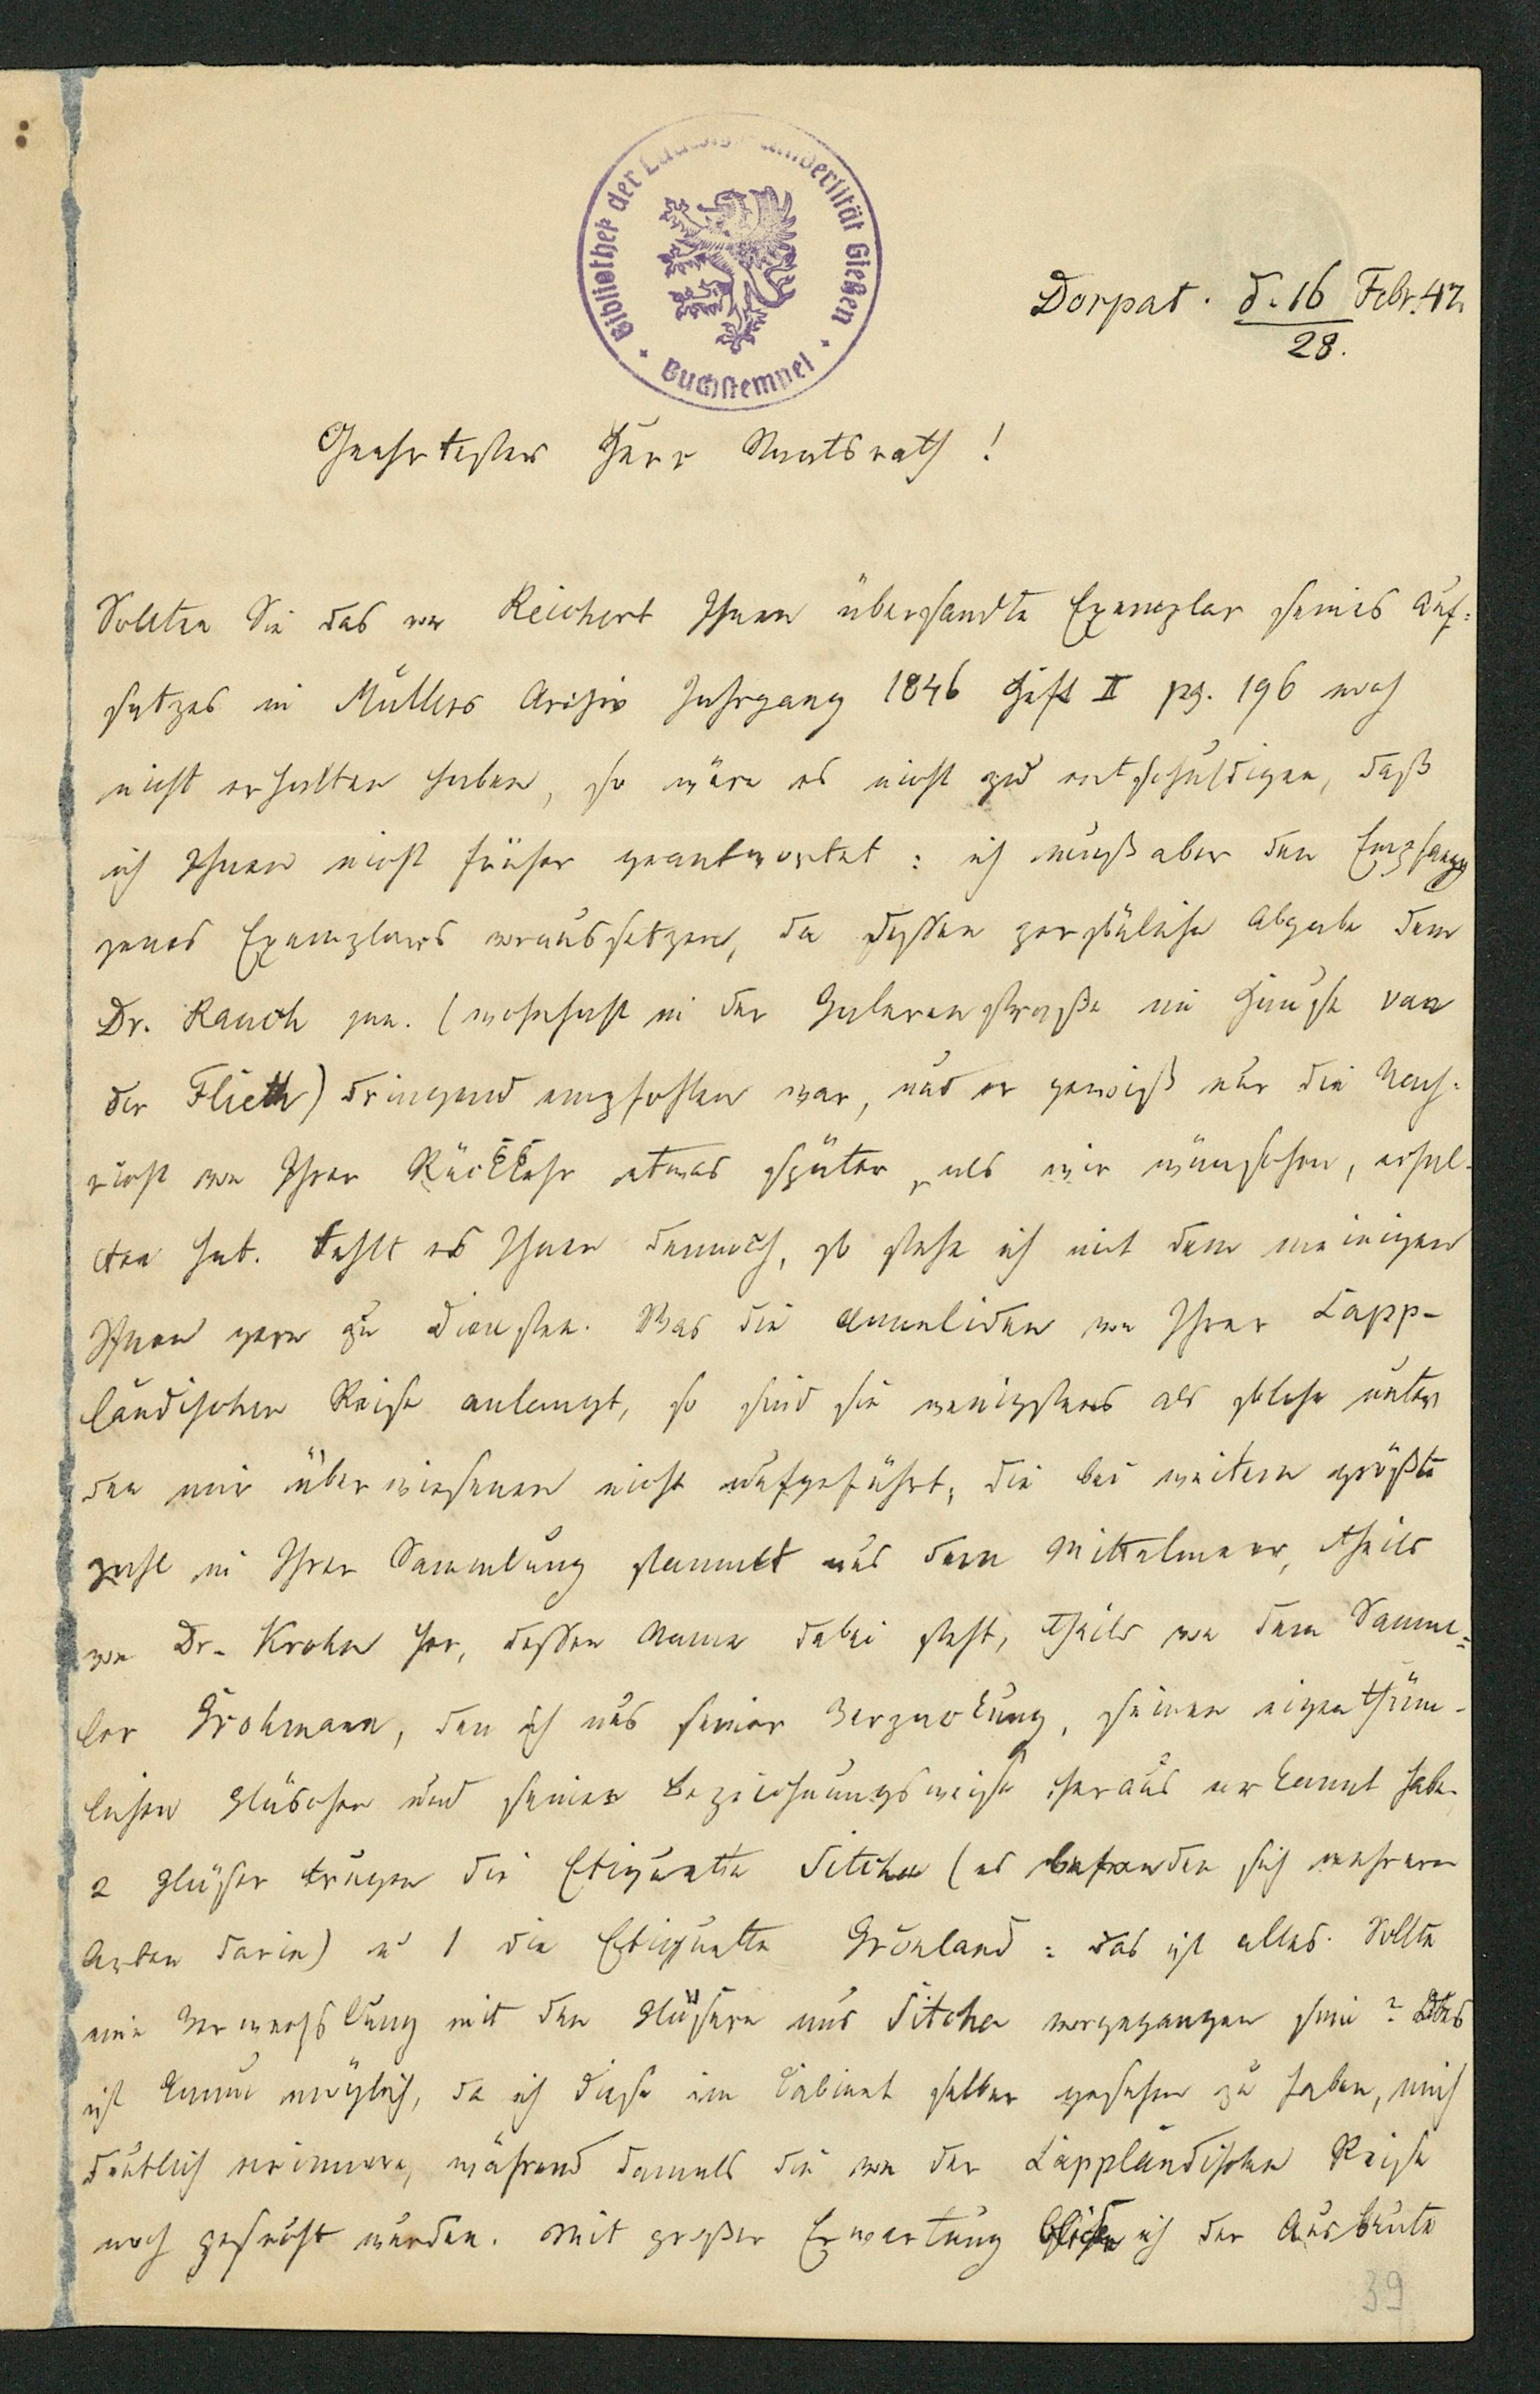 Bibliothek der Ludwigs-Universität Gießen
Buchstempel
Dorpat. d. 16 Febr. 47.
28.
Geehrtester Herr Staatsrath!
Sollten Sie das von Reichert Ihnen übersandte Exemplar seines Auf-
satzes in Müllers Archiv Jahrgang 1846 Heft II pg. 196 noch
nicht erhalten haben, so wäre es nicht zu entschuldigen, daß
ich Ihnen nicht früher geantwortet: ich muß aber den Empfang
jenes Exemplars voraussetzen, da dessen persönliche Abgabe dem
Dr. Rauch jun. (wohnhaft in der Galerenstraße im Hause van
der Flieth) dringend empfohlen war, und er gewiß nur die Nach-
richt von Ihrer Rückkehr etwas später, als wir wünschen, erhal-
ten hat. Fehlt es Ihnen dennoch, so stehe ich mit dem meinigen
Ihnen gern zu Diensten. Was die Anneliden von Ihrer Lapp-
ländischen Reise anlangt, so sind sie wenigstens als solche unter
den mir überwiesenen nicht aufgeführt, die bei weitem größte
Zahl in Ihrer Sammlung stammt aus dem Mittelmeer, theils
von Dr. Krohn her, dessen Name dabei steht, theils von dem Samm-
ler Grohmann, den ich aus seiner Verpackung, seinen eigenthüm-
lichen Gläschen und seiner Bezeichnungsweise heraus erkannt habe.
2 Gläser trugen die Etiquette Sitcha (es befanden sich mehrere
Arten darin) u 1 die Etiquette Grönland: das ist alles. Sollte
eine Verwechslung mit den Gläsern aus Sitcha vorgegangen sein? Dies
ist kaum möglich, da ich diese im Cabinet selber gesehen zu haben, mich
deutlich erinnere, während damals die von der Lappländischen Reise
noch gesucht wurden. Mit großer Erwartung ich der Ausbeute
39